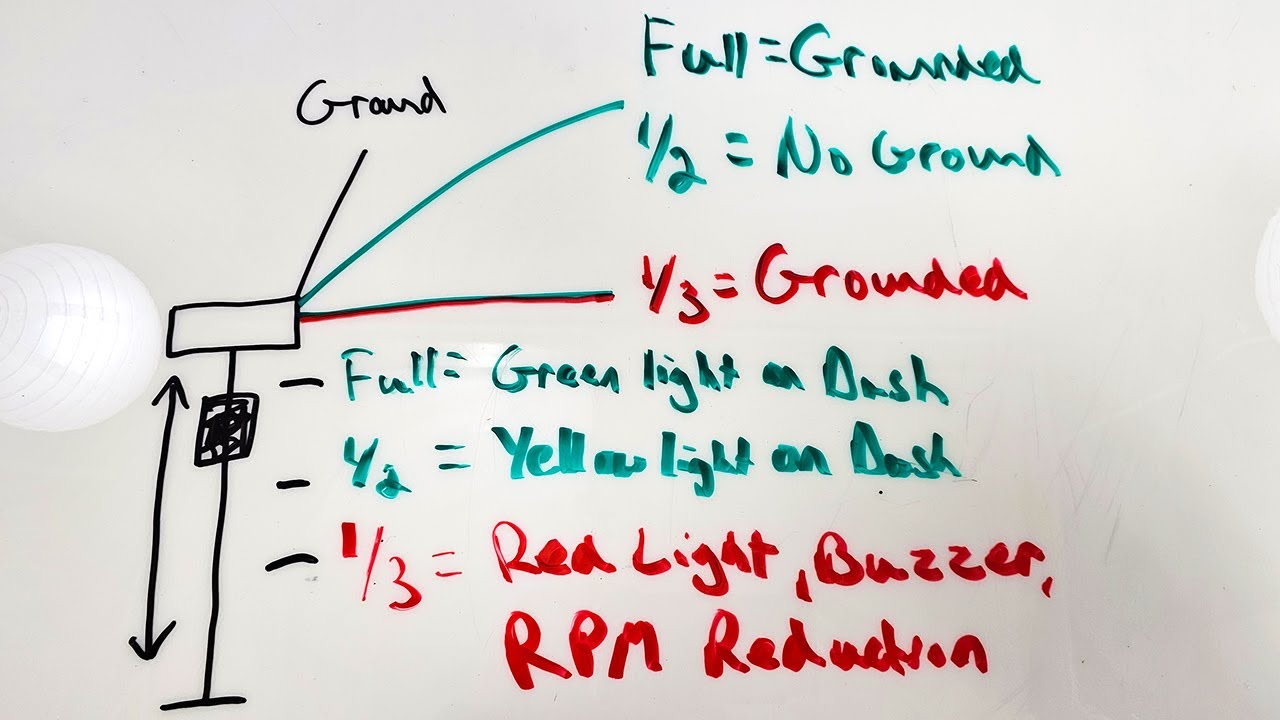 Full=Grounded
Ground
1/2 = No Ground
1/3 = Grounded
- Full= Green light on Dash
- 1/2 = Yellow light on Dash
- 1/3 = Red Light, Buzzer,
RPM Reduction